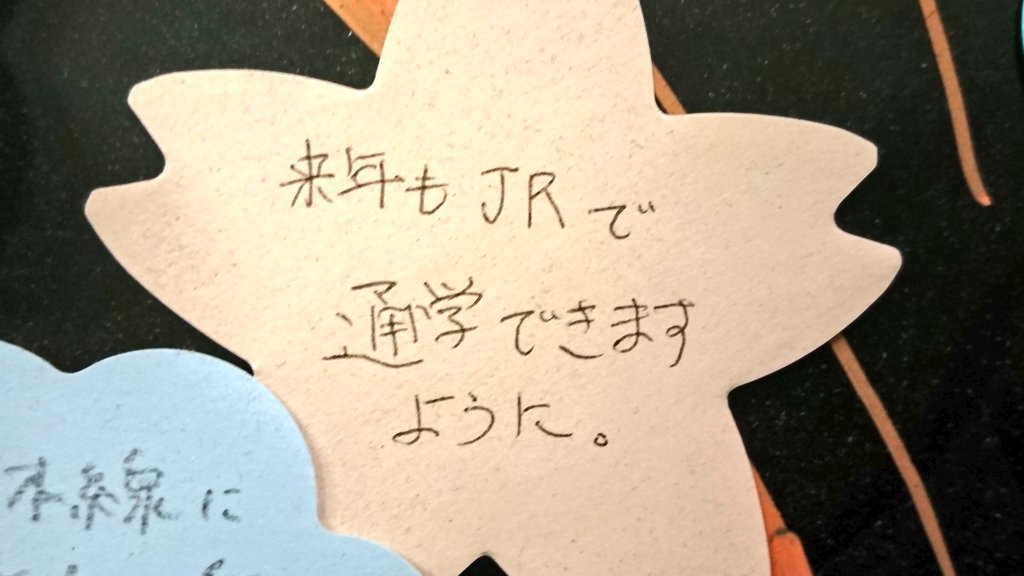 来年もJRで
通学できます
ように。
本線に